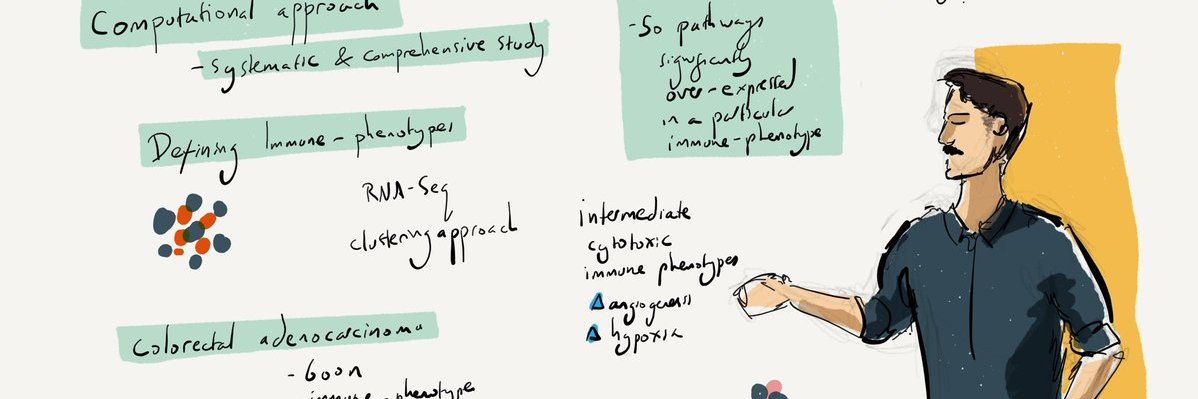 Computational approach
- systematic & comprehensive study
Defining Immune-phenotypes
RNA-Seq
clustering approach
Colorectal adenocarcinoma
- 600n
immune-phenotype
- 50 pathways
significantly
over-expressed
in a particular
immune-phenotype
intermediate
cytotoxic
immune phenotypes
Δ angiogenesis
Δ hypoxia